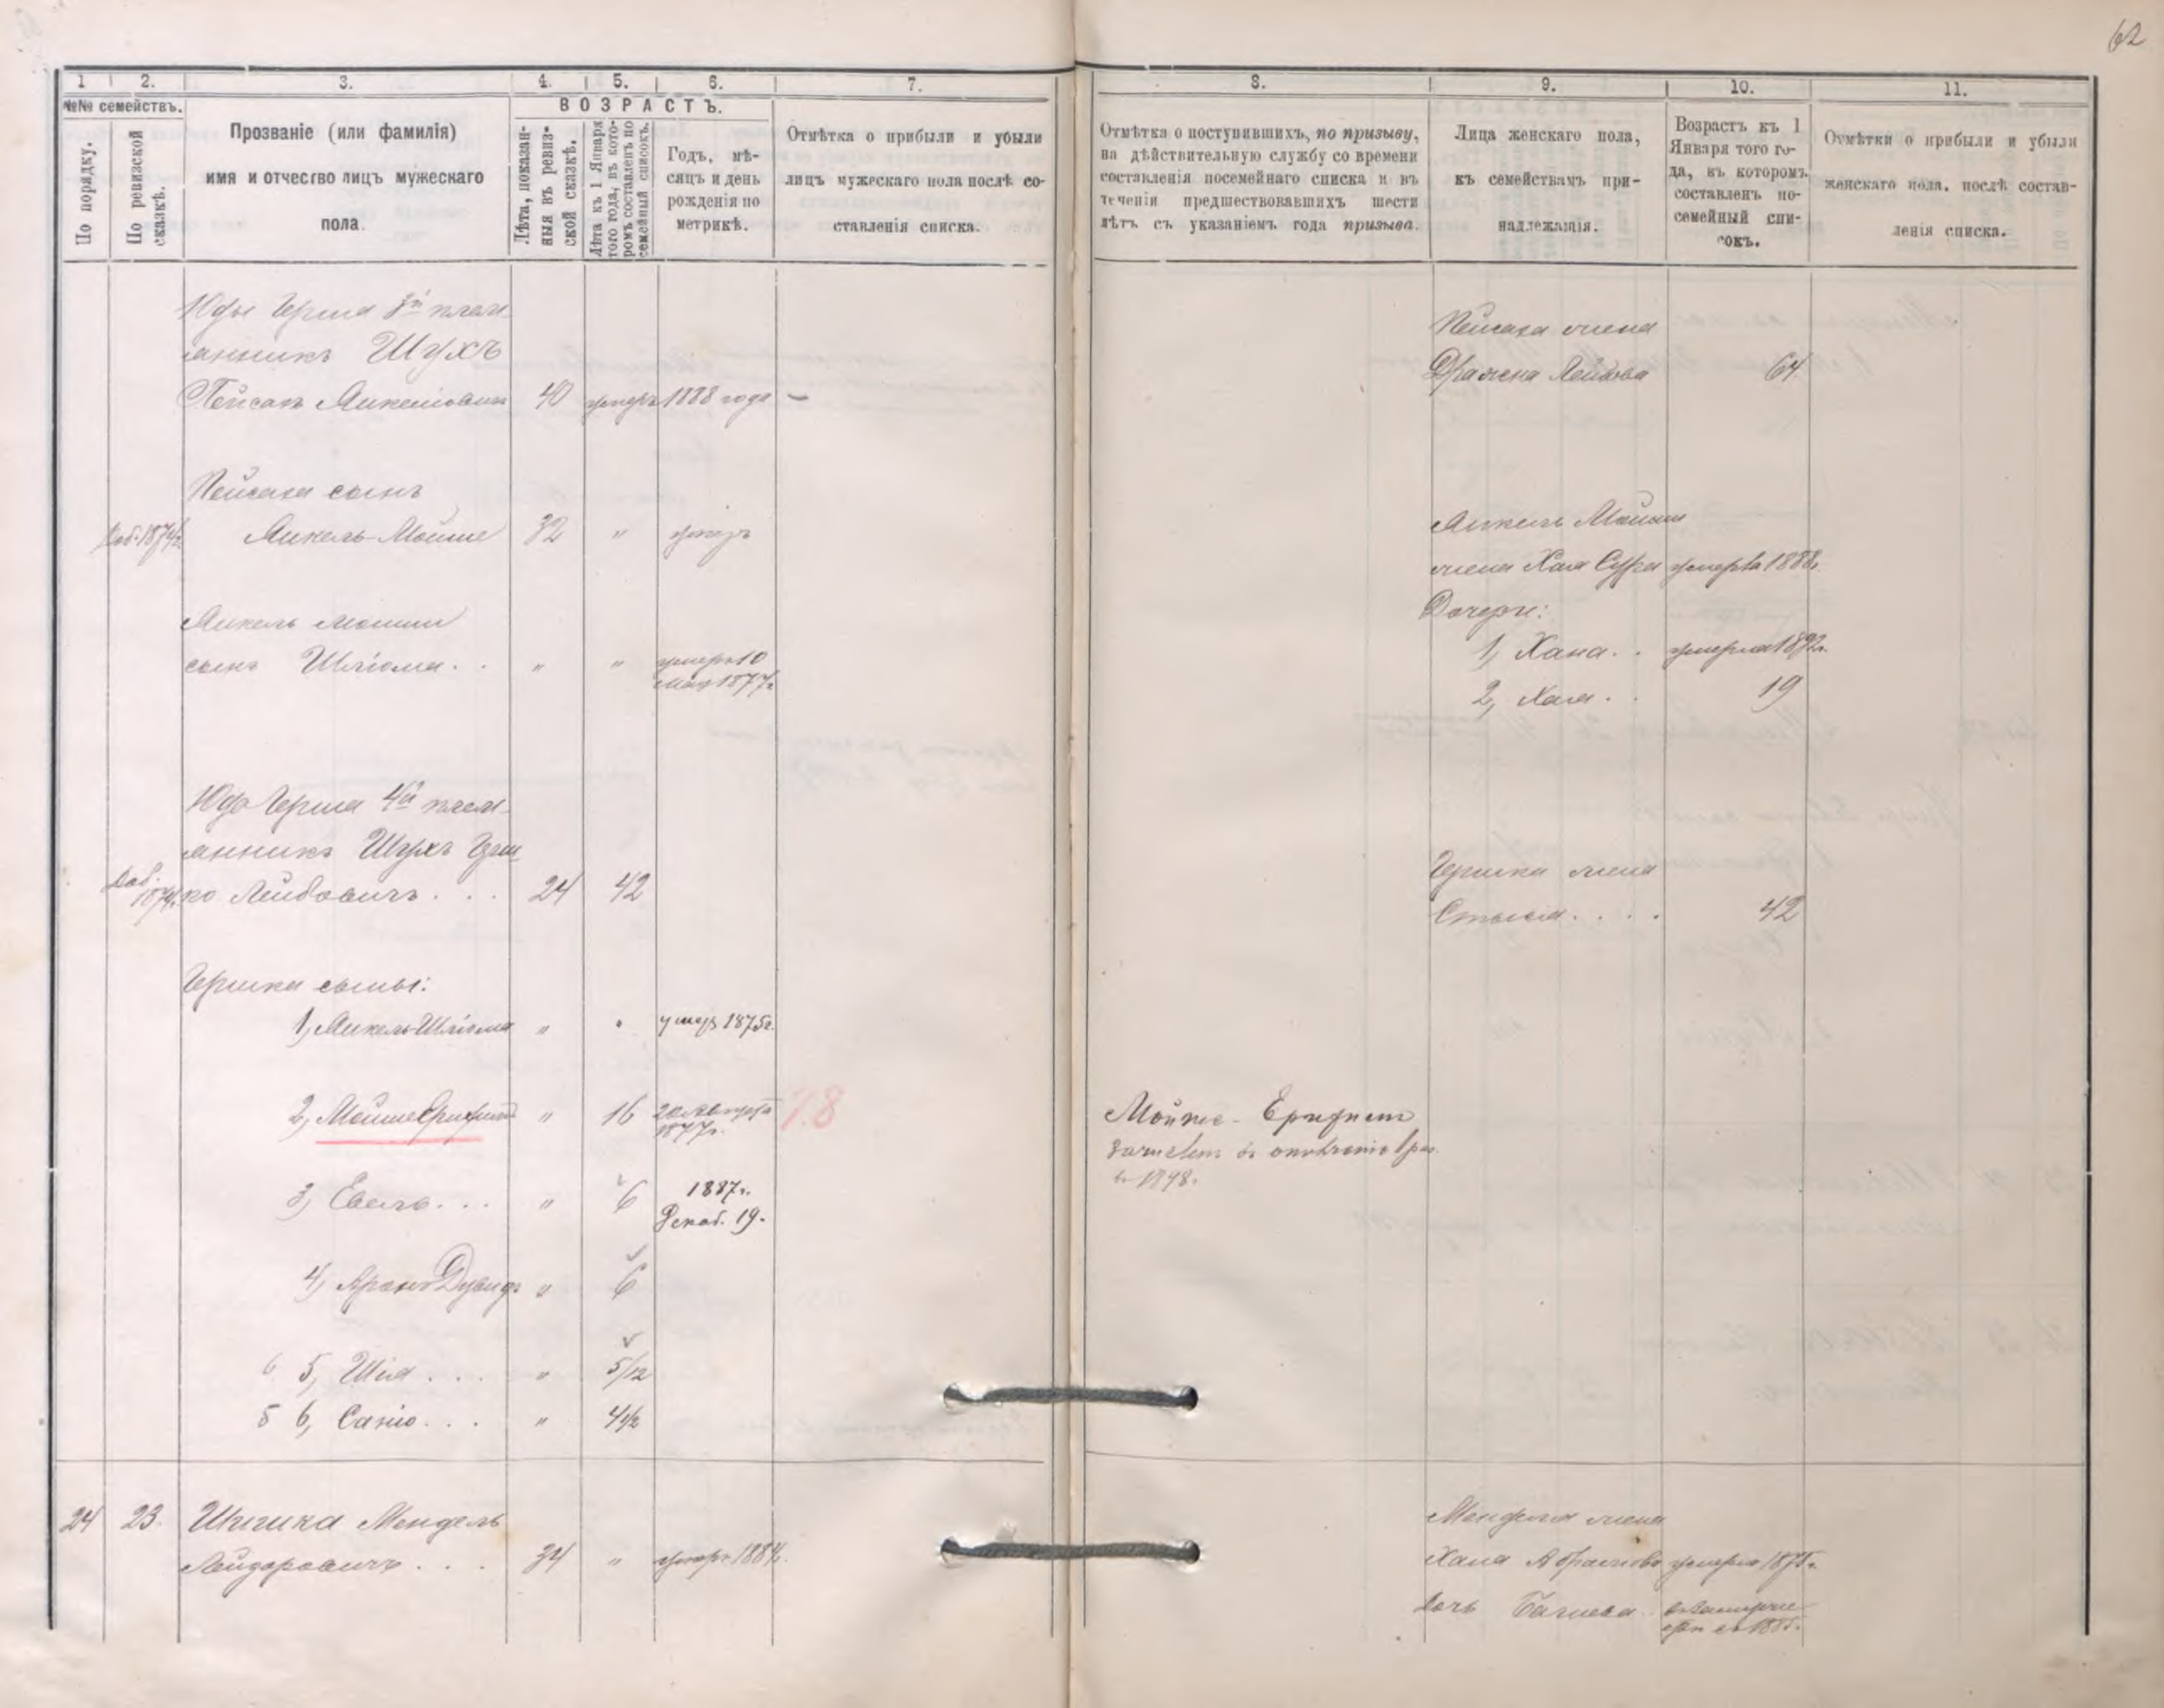 62
1 2. 3. 4. 5. 6. 7.
№№ семействъ.
По порядку.
По ревизской сказкѣ.
Прозваніе (или фамилія)
имя и отчество лицъ мужескаго
пола.
ВОЗРАСТЪ.
Лѣта, показан-
ныя въ ревиз-
ской сказкѣ.
Лѣта къ 1 Января
того года, въ кото-
ромъ составленъ по
семейный списокъ.
Годъ, мѣ-
сяцъ и день
рожденія по
метрикѣ.
Отмѣтка о прибыли и убыли
лицъ мужескаго пола послѣ со-
ставленія списка.
8. 9. 10. 11.
Отмѣтка о поступившихъ, по призыву,
на дѣйствительную службу со времени
составленія посемейнаго списка и въ
теченіи предшествовавшихъ шести
лѣтъ съ указаніемъ года призыва.
Лица женскаго пола,
къ семействамъ при-
надлежащія.
Возрастъ къ 1
Января того го-
да, въ которомъ
составленъ по-
семейный спи-
сокъ.
Отмѣтки о прибыли и убыли
женскаго пола, послѣ состав-
ленія списка.
Юды Герша 3й плем-
янникъ Шухъ
Пейсахъ Анкелiовичъ 40 умеръ 1888 года —
Пейсаха жена
64
Пейсаха сынъ
Анкель-Мойше 32 " умеръ
Анкель Мойши
жена Хая Сура умерла 1888г.
Дочери:
1, Хана . . умерла 1892г.
2, Хая . . 19
Анкель Мошки
сынъ Шліома . . " " умеръ 10
мая 1877г
Юдо Герша 4й плем-
янникъ Шухъ Герш
Доб.
ко Лейбовичъ . . . 24 42
Гершка жена
42
Гершка сыны:
1, Анкель-Шліома " " умеръ 1875г.
2, Мойше Ерухимъ " 16 20 Августа
1877г.
78
Мойше-Ерухимъ
въ 1898.
3, Евель . . . " 6 1887г.
Декаб. 19.
4, Аронъ Дувидъ " 6
6 5, Шія . . . " 5/12
5 6, Санію . . . " 4½
24 23. Мендель
34 " умеръ 1884г.
Менделя жена
Хана Абрамова умерла 1875г.
дочь